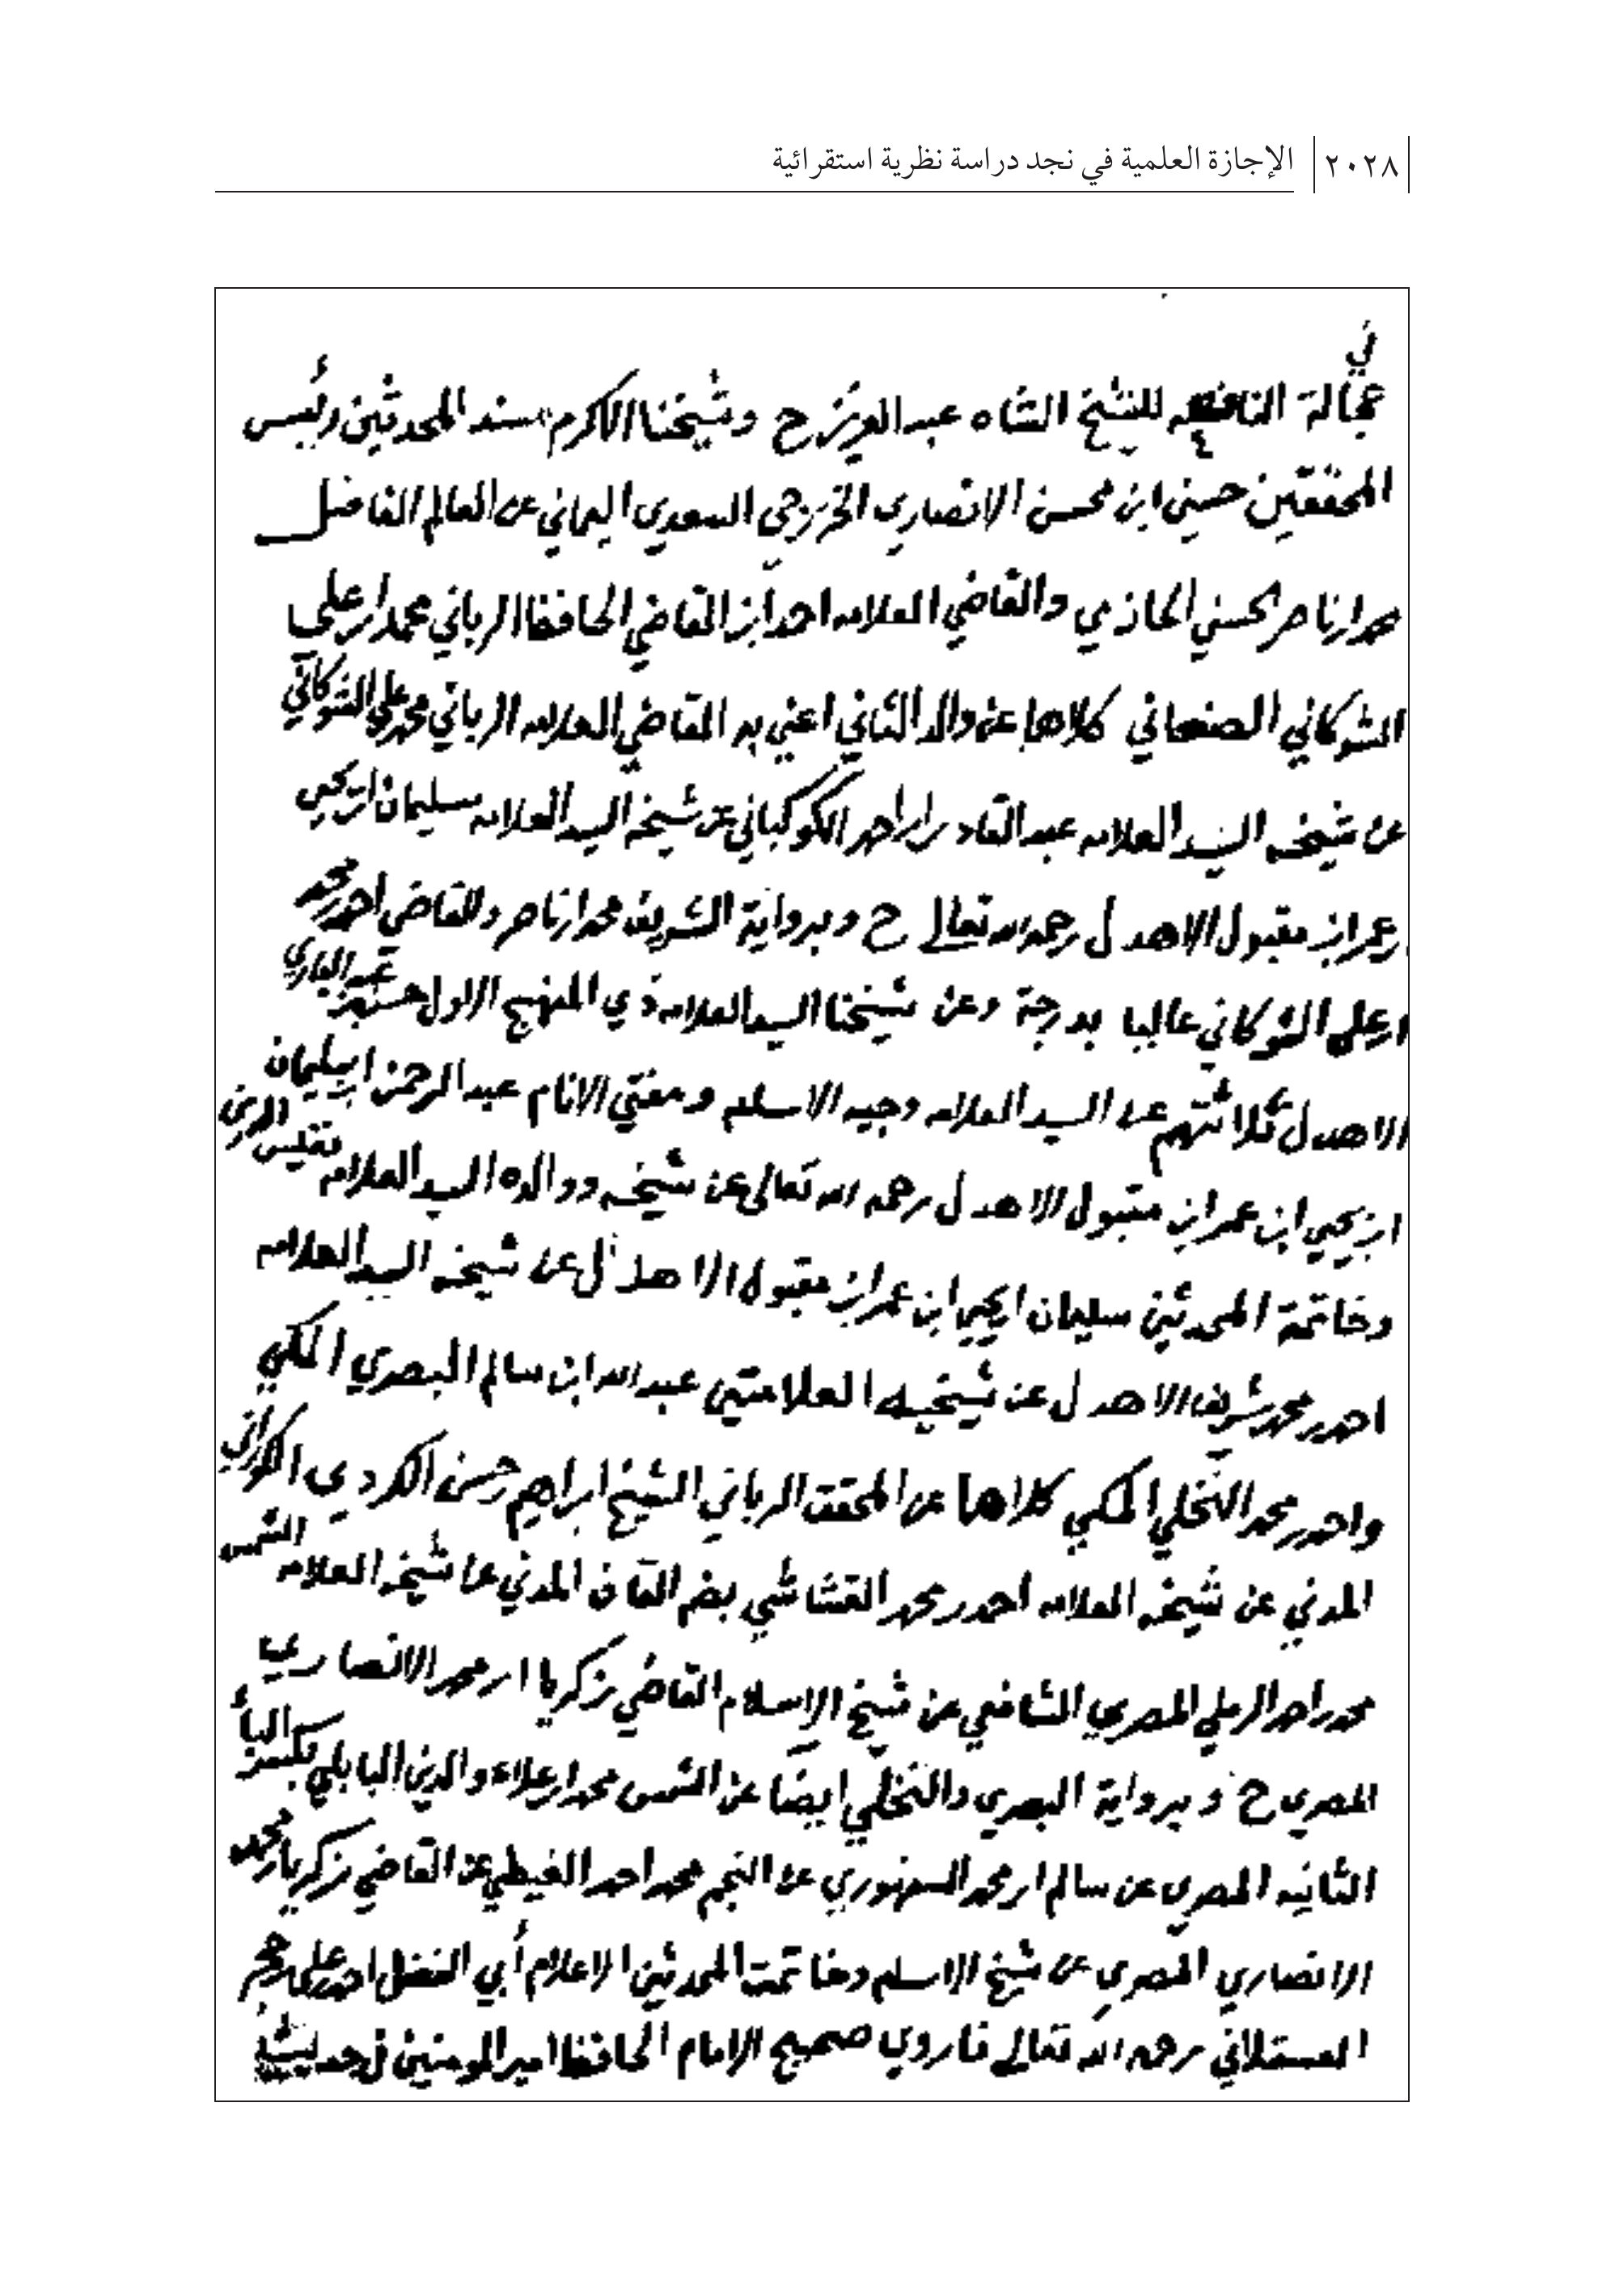 ٢٠٢٨ الإجازة العلمية في نجد دراسة نظرية استقرائية
في
عجالة النافعه للشيخ الشاه عبد العزيز ح وشيخنا الاكرم مسند المحدثين رئيس
المحققين حسين ابن محسن الانصاري الخزرجي السعدي اليماني عن العالم الفاضل
محمد ابن ناصر الحسني الحازمي والقاضي العلامه احمد ابن القاضي الحافظ الرباني محمد ابن علي
الشوكاني الصنعاني كلاهما عن والد الثاني اعني به القاضي العلامه الرباني محمد بن علي الشوكاني
عن شيخه السيد العلامه عبد القادر ابن احمد الكوكباني عن شيخه السيد العلامه سليمان ابن يحيى
ابن عمر ابن مقبول الاهدل رحمه الله تعالى ح وبرواية الشريف محمد ابن ناصر والقاضي احمد بن محمد
ابن علي الشوكاني عاليا بدرجة وعن شيخنا السيد العلامه ذي المنهج الاول حسن بن عبد الباري
الاهدل ثلاثتهم عن السيد العلامه وجيه الاسلام ومفتي الانام عبد الرحمن ابن سليمان
ابن يحيى ابن عمر ابن مقبول الاهدل رحمه الله تعالى عن شيخه ووالده السيد العلامه نفيس الدين
وخاتمة المحدثين سليمان ابن يحيى ابن عمر ابن مقبول الاهدل عن شيخه السيد العلامه
احمد بن محمد شريف الاهدل عن شيخيه العلامتين عبد الله ابن سالم البصري المكي
واحمد بن محمد النخلي المكي كلاهما عن المحقق الرباني الشيخ ابراهيم بن حسن الكردي الكوراني
المدني عن شيخه العلامه احمد بن محمد القشاشي بضم القاف المدني عن شيخه العلامه الشمس
محمد بن احمد الرملي المصري الشافعي عن شيخ الاسلام القاضي زكريا ابن محمد الانصاري
المصري ح وبرواية البصري والنخلي ايضا عن الشمس محمد ابن علاء والدين البابلي بكسر الباء
الثانيه المصري عن سالم ابن محمد السنهوري عن النجم محمد بن احمد الغيطي عن القاضي زكريا بن محمد
الانصاري المصري عن شيخ الاسلام وخاتمت المحدثين الاعلام أبي الفضل احمد بن علي بن حجر
العسقلاني رحمه الله تعالى فاروي صحيح الامام الحافظ امير المومنين في حديث